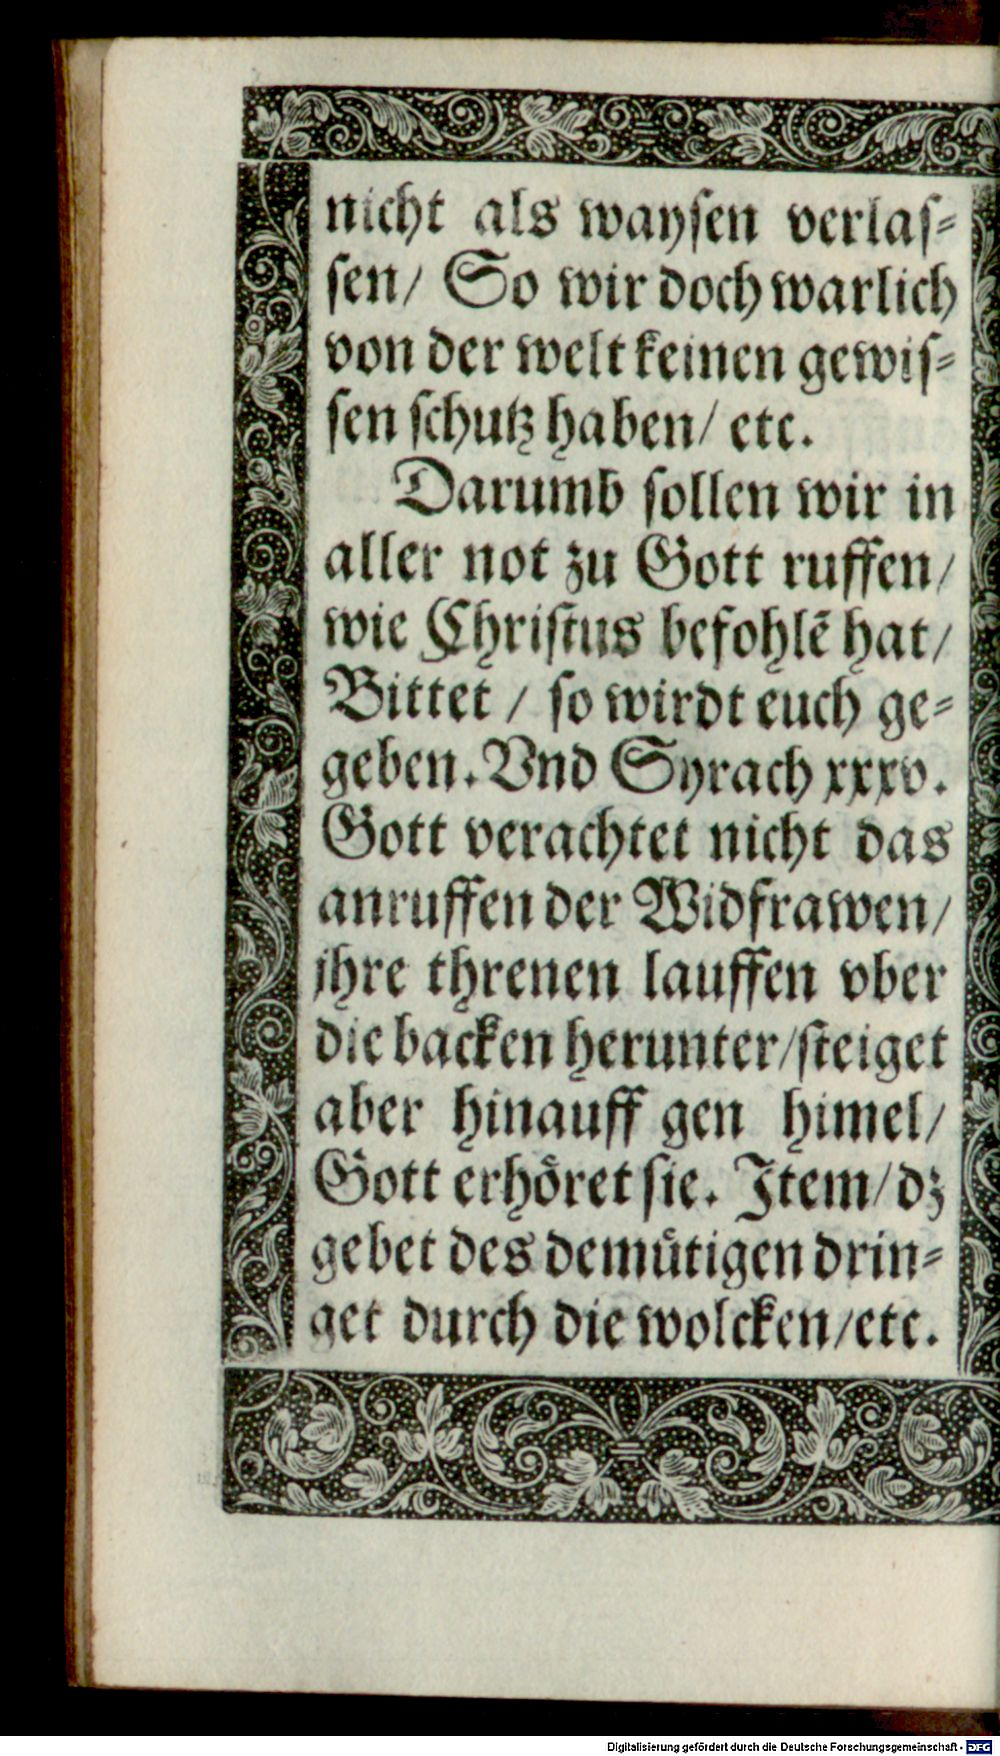 nicht als waysen verlas⸗
sen/ So wir doch warlich
von der welt keinen gewis⸗
sen schutz haben/ etc.
Darumb sollen wir in
aller not zu Gott ruffen/
wie Christus befohlẽ hat/
Bittet / so wirdt euch ge⸗
geben. Vnd Syrach xxxv.
Gott verachtet nicht das
anruffen der Widfrawen/
jhre threnen lauffen vber
die backen herunter/steiget
aber hinauff gen himel/
Gott erhöret sie. Item/dz
gebet des demütigen drin⸗
get durch die wolcken/etc.
Digitalisierung gefördert durch die Deutsche Forschungsgemeinschaft - DFG